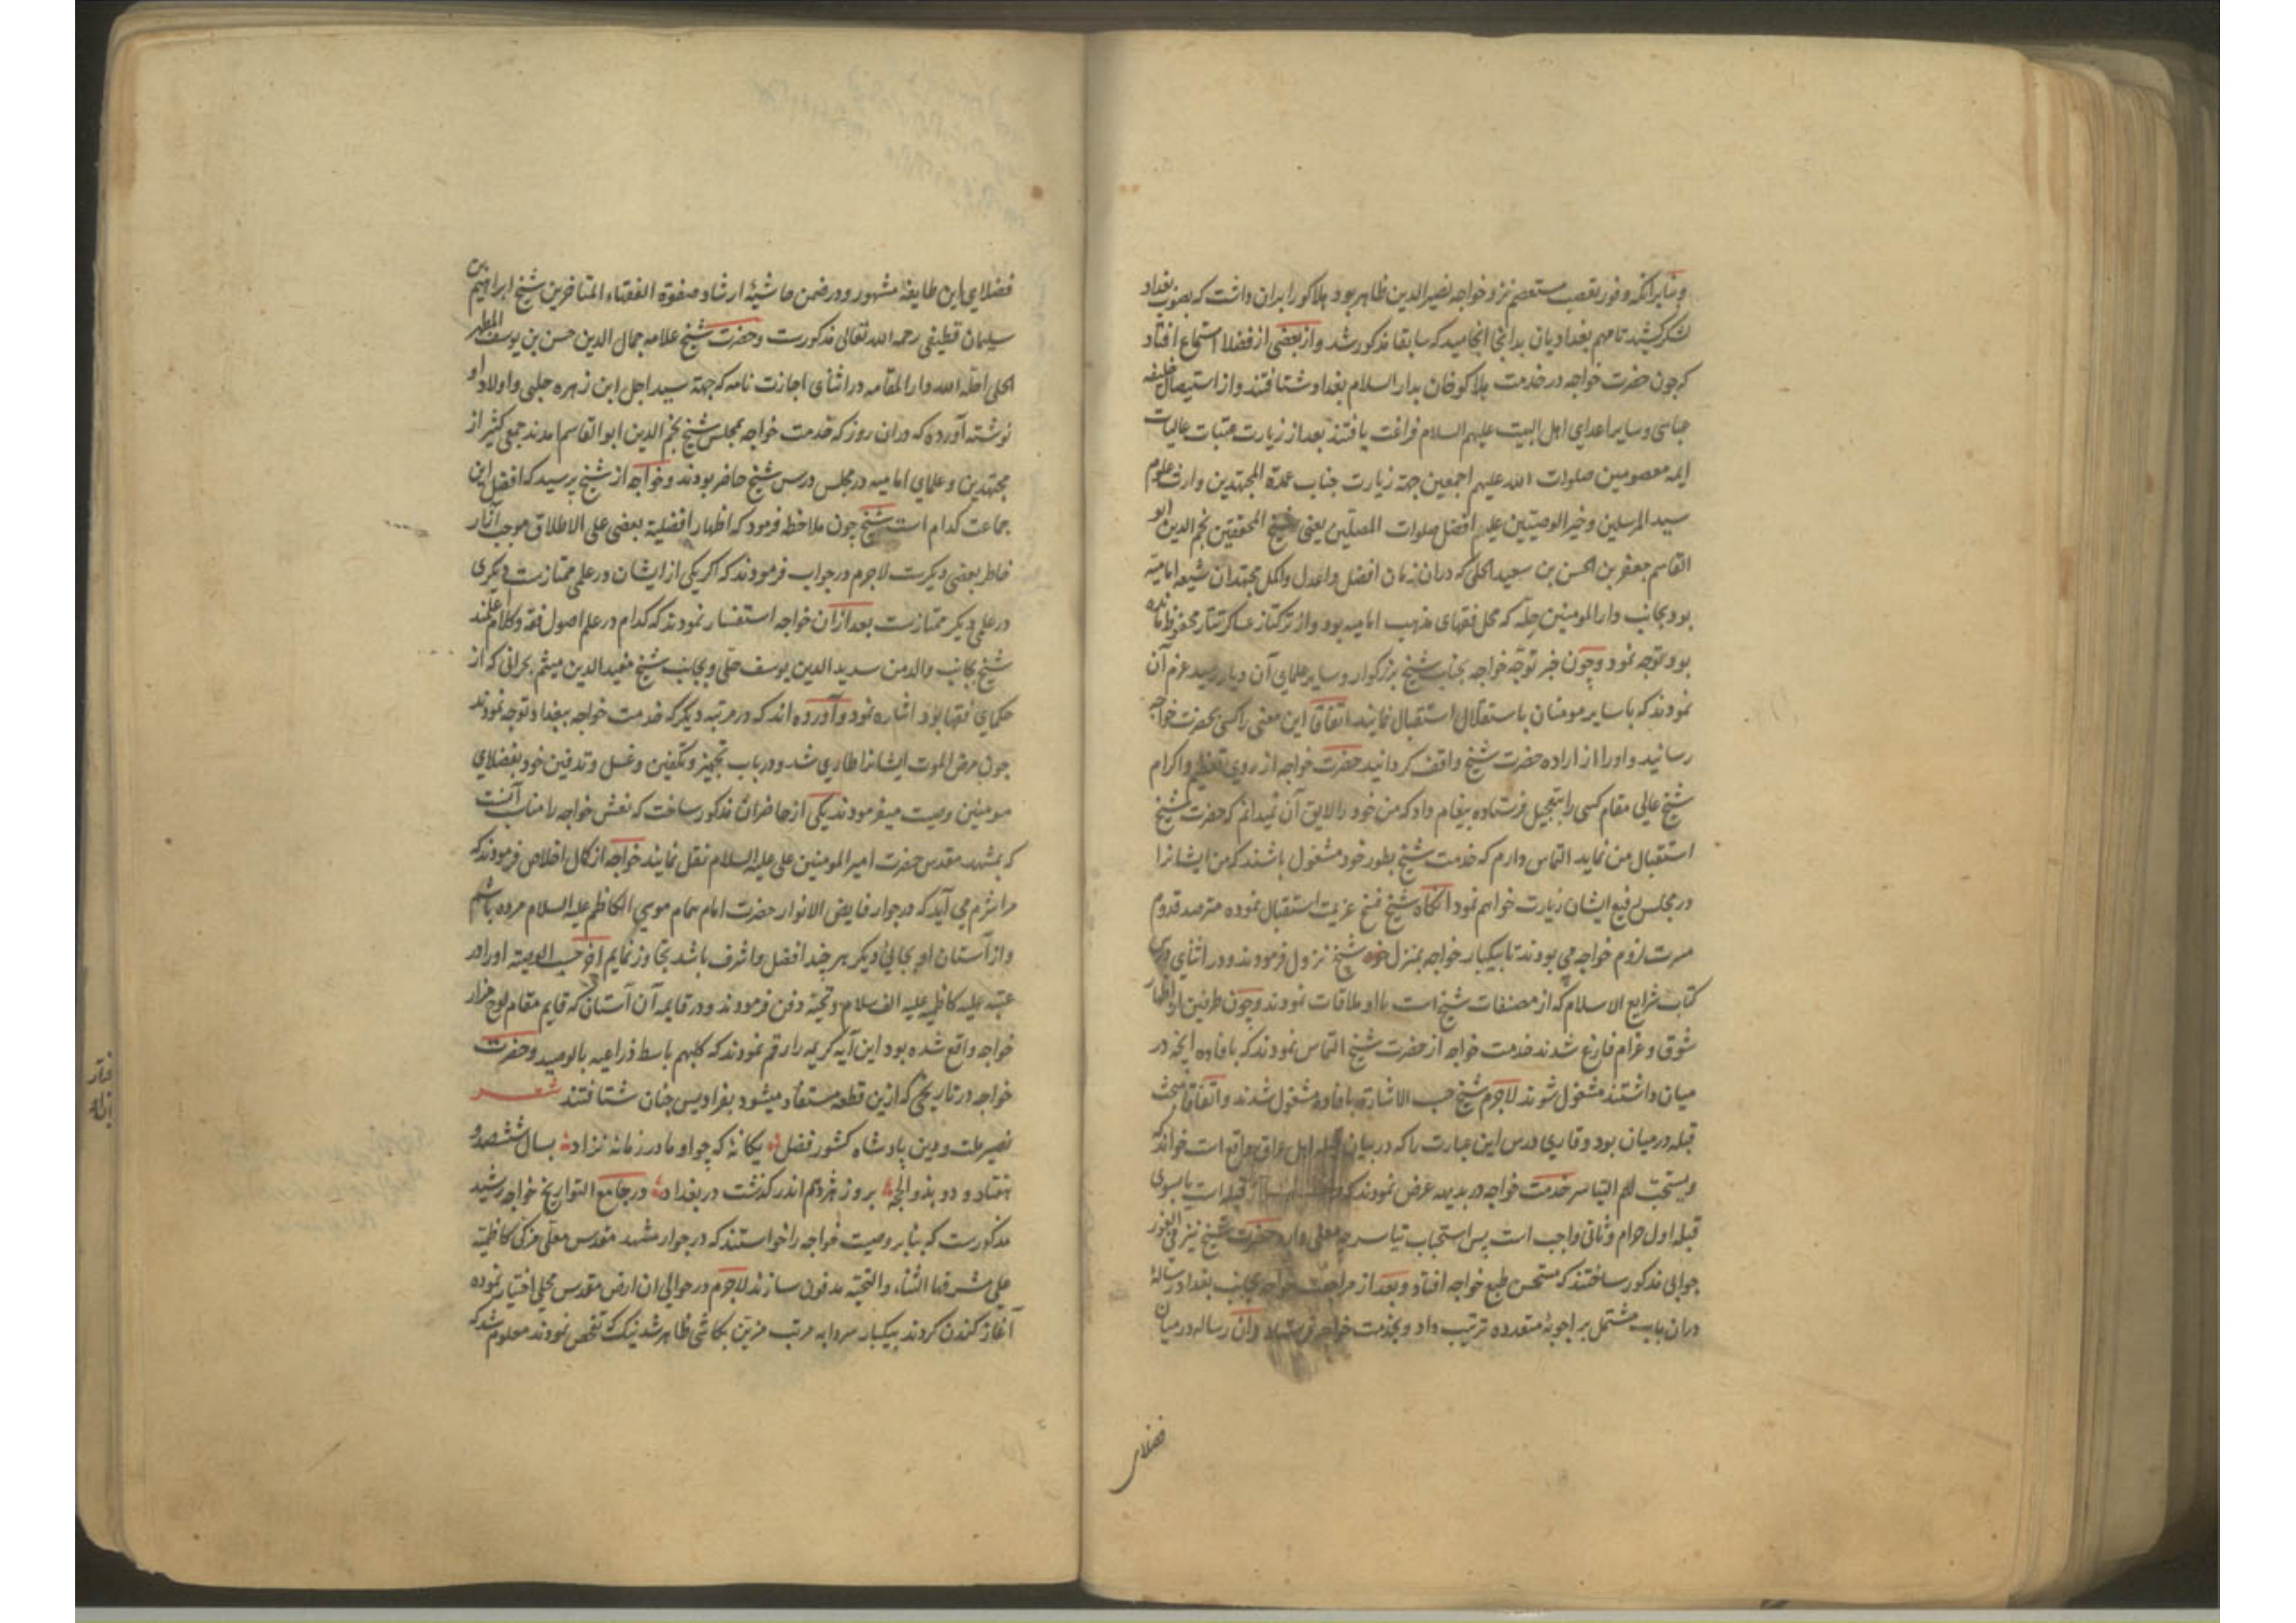 و بنابرانکه وفور تعصب مستعصم نزد خواجه نصیرالدین ظاهر بود هلاکو را بران داشت که بصوب بغداد
لشکر کشید تا مهم بغدادیان بدانجا انجامید که سابقا مذکور شد و از بعضی از فضلا استماع افتاد
که چون حضرت خواجه در خدمت هلاکو خان بدار السلام بغداد شتافتند و از استیصال خلیفه
عباسی و سایر اعدای اهل البیت علیهم السلام فراغت یافتند بعد از زیارت عتبات عالیات
ایمه معصومین صلوات الله علیهم اجمعین جهة زیارت جناب عمدة المجتهدین وارث علوم
سید المرسلین و خیر الوصیین علیهم افضل صلوات المصلین یعنی شیخ المحققین نجم الدین ابو
القاسم جعفر بن الحسن بن سعید الحلی که دران زمان افضل و اعدل و اکمل مجتهدان شیعه امامیه
بود بجانب دار المومنین حله که محل فقهای مذهب امامیه بود و از ترکتاز عساکر تتار محفوظ مانده
بود توجه نمود و چون خبر توجه خواجه بجناب شیخ بزرکوار و سایر علمای آن دیار رسید عزم آن
نمودند که با سایر مومنان باستقلال استقبال نمایند اتفاقا این معنی را کسی بحضرت خواجه
رسانید و او را از اراده حضرت شیخ واقف کردانید حضرت خواجه از روی تعظیم و اکرام
شیخ عالی مقام کسی را بتعجیل فرستاده پیغام داد که من خود را لایق آن نمیدانم که حضرت شیخ
استقبال من نماید التماس دارم که خدمت شیخ بطور خود مشغول باشند که من ایشانرا
در مجلس رفیع ایشان زیارت خواهم نمود انکاه شیخ فسخ عزیمت استقبال نموده مترصد قدوم
مسرت لزوم خواجه می بودند تا بیکبار خواجه بمنزل شیخ نزول فرمودند و در اثنای درس
کتاب شرایع الاسلام که از مصنفات شیخ است با او ملاقات نمودند و چون طرفین از اظهار
شوق و غرام فارغ شدند خدمت خواجه از حضرت شیخ التماس نمودند که بافاده انچه در
میان داشتند مشغول شوند لاجرم شیخ حسب الاشارة بافاده مشغول شدند و اتفاقا مبحث
قبله در میان بود و قاری درس این عبارت را که در بیان قبله اهل عراق واقع است خواند که
و یستحب لهم التیاسر خدمت خواجه در بدیهه عرض نمودند که قبله است یا بسوی
قبله اول حرام و ثانی واجب است پس استحباب تیاسر چه معنی دارد حضرت شیخ نیز فی الفور
جوابی مذکور ساختند که مستحسن طبع خواجه افتاد و بعد از مراجعت خواجه بجانب بغداد رسالهٔ
دران باب مشتمل بر اجوبهٔ متعدده ترتیب داد و بخدمت خواجه فرستاد و آن رساله در میان
فضلای
فضلای این طایفه مشهور و در ضمن حاشیهٔ ارشاد صفوة الفقهاء المتاخرین شیخ ابراهیم بن
سلیمان قطیفی رحمه الله تعالی مذکورست و حضرت شیخ علامه جمال الدین حسن بن یوسف المطهر
الحلی احله الله دار المقامه در اثنای اجازت نامه که جهة سید اجل ابن زهره حلبی و اولاد او
نوشته آورده که دران روز که خدمت خواجه بمجلس شیخ نجم الدین ابو القاسم امدند جمعی کثیر از
مجتهدین و علمای امامیه در مجلس درس شیخ حاضر بودند و خواجه از شیخ پرسید که افضل این
جماعت کدام است شیخ چون ملاحظه فرمود که اظهار افضلیة بعضی علی الاطلاق موجب آزار
خاطر بعضی دیکرست لاجرم در جواب فرمودند که اکر یکی از ایشان در علمی ممتازست دیکری
در علمی دیکر ممتازست بعد ازان خواجه استفسار نمودند که کدام در علم اصول فقه و کلام اعلمند
شیخ بجانب والد من سدید الدین یوسف حلی و بجانب شیخ مفید الدین میثم بحرانی که از
حکمای فقها بود اشاره نمود و آورده اند که در مرتبه دیکر که خدمت خواجه ببغداد توجه نمودند
چون مرض الموت ایشانرا طاری شد و در باب تجهیز و تکفین و غسل و تدفین خود بفضلای
مومنین وصیت میفرمودند یکی از حاضران مذکور ساخت که نعش خواجه را مناسب آنست
که بمشهد مقدس حضرت امیر المومنین علی علیه السلام نقل نمایند خواجه از کمال اخلاص فرمودند که
مرا شرم می آید که در جوار فایض الانوار حضرت امام همام موسی الکاظم علیه السلام مرده باشم
و از آستان او بجائی دیکر هر چند افضل و اشرف باشد تجاوز نمایم اخر حسب الوصیة او را در
عتبه علیه کاظمیه علیه الف سلام و تحیة دفن فرمودند و در قایمه آن آستان که قایم مقام لوح مزار
خواجه واقع شده بود این آیه کریمه را رقم نمودند که کلبهم باسط ذراعیه بالوصید و حضرت
خواجه در تاریخی که ازین قطعه مستفاد میشود بفرادیس جنان شتافتند شعر
نصیر ملت و دین پادشاه کشور فضل یکانهٔ که چو او مادر زمانه نزاد بسال ششصد و
هفتاد و دو بذو الحجه بروز هژدهم اندر کذشت در بغداد در جامع التواریخ خواجه رشید
مذکورست که بنا بر وصیت خواجه را خواستند که در جوار مشهد مقدس معلی مزکی کاظمیه
علی مشرفها الثناء و التحیة مدفون سازند لاجرم در حوالی ان ارض مقدس محلی اختیار نموده
آغاز کندن کردند بیکبار سردابه مرتب مزین بکاشی ظاهر شد نیک تفحص نمودند معلوم شد که